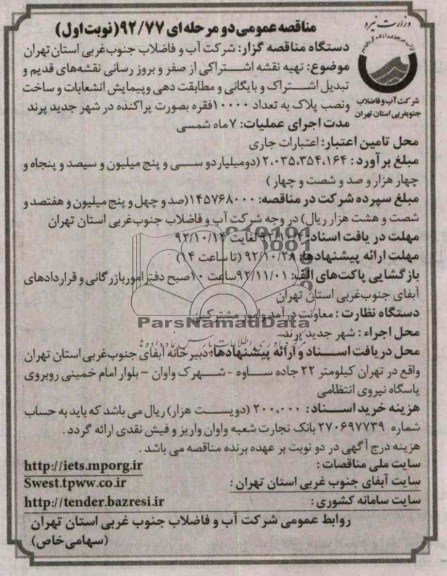 وزارت نیرو
شرکت آب و فاضلاب
جنوبغربی استان تهران
مناقصه عمومی دو مرحله ای ۹۲/۷۷ (نوبت اول)
دستگاه مناقصه گزار: شرکت آب و فاضلاب جنوب‌غربی استان تهران
موضوع: تهیه نقشه اشتراکی از صفر و بروز رسانی نقشه‌های قدیم و
تبدیل اشتراک و بایگانی و مطابقت دهی وپیمایش انشعابات و ساخت
ونصب پلاک به تعداد ۱۰۰۰۰ فقره بصورت پراکنده در شهر جدید پرند
مدت اجرای عملیات: ۷ ماه شمسی
محل تامین اعتبار: اعتبارات جاری
مبلغ برآورد: ۲.۰۳۵.۳۵۴.۱۶۴ (دومیلیارد و سی و پنج میلیون و سیصد و پنجاه و
چهار هزار و صد و شصت و چهار)
مبلغ سپرده شرکت در مناقصه: ۱۴۵۷۶۸۰۰۰ (صد و چهل و پنج میلیون و هفتصد و
شصت و هشت هزار ریال) در وجه شرکت آب و فاضلاب جنوب غربی استان تهران
مهلت دریافت اسناد: لغایت ۹۲/۱۰/۱۴
مهلت ارائه پیشنهادها: ۹۲/۱۰/۲۸ (تا ساعت ۱۴)
بازگشایی پاکت‌های الف: ۹۲/۱۱/۰۱ ساعت ۱۰ صبح دفتر امور بازرگانی و قراردادهای
آبفای جنوب‌غربی استان تهران
دستگاه نظارت: معاونت درآمد و امور مشترکین
محل اجراء: شهر جدید پرند
ParsNamadData
محل دریافت اسناد و ارائه پیشنهادها: دبیرخانه آبفای جنوب‌غربی استان تهران
واقع در تهران کیلومتر ۲۲ جاده ساوه - شهرک واوان - بلوار امام خمینی روبروی
پاسگاه نیروی انتظامی
هزینه خرید اسناد: ۲۰۰.۰۰۰ (دویست هزار) ریال می باشد که باید به حساب
شماره ۲۷۰۶۹۷۷۳۹ بانک تجارت شعبه واوان واریز و فیش نقدی ارائه گردد.
هزینه درج آگهی در دو نوبت بر عهده برنده مناقصه می باشد.
سایت ملی مناقصات: http://iets.mporg.ir
سایت آبفای جنوب غربی استان تهران: Swest.tpww.co.ir
سایت سامانه کشوری: http://tender.bazresi.ir
روابط عمومی شرکت آب و فاضلاب جنوب غربی استان تهران
(سهامی خاص)